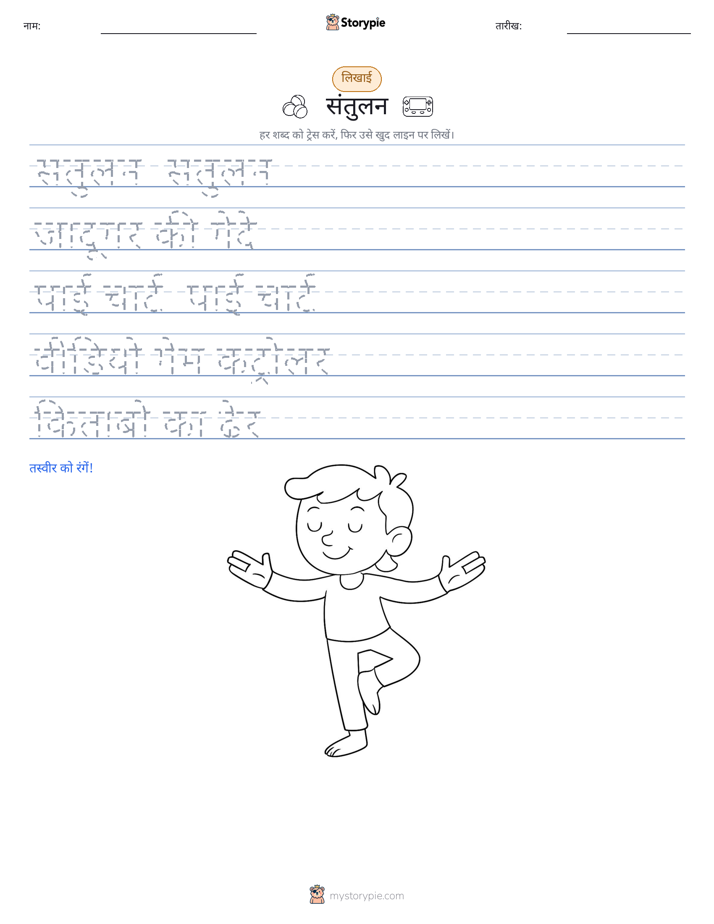 नाम:
Storypie
तारीख:
लिखाई
संतुलन
हर शब्द को ट्रेस करें, फिर उसे खुद लाइन पर लिखें।
संतुलन संतुलन
जादूगर की गेंदें
पाई चार्ट पाई चार्ट
वीडियो गेम कंट्रोलर
किताबों का ढेर
तस्वीर को रंगें!
mystorypie.com